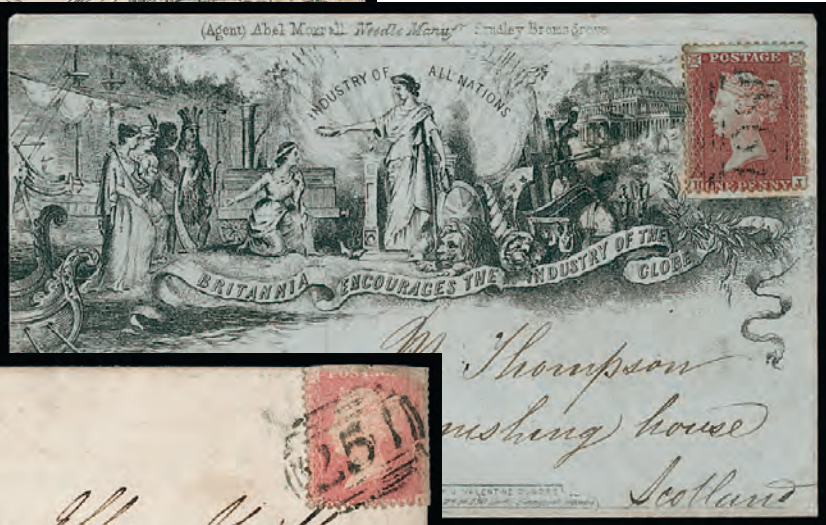 (Agent) Abel Morrall Needle Manufr Studley Bromsgrove
INDUSTRY OF ALL NATIONS
POSTAGE
ONE PENNY
BRITANNIA ENCOURAGES THE INDUSTRY OF THE GLOBE
Mr Thompson
house
Scotland
VALENTINE DUNDEE
251